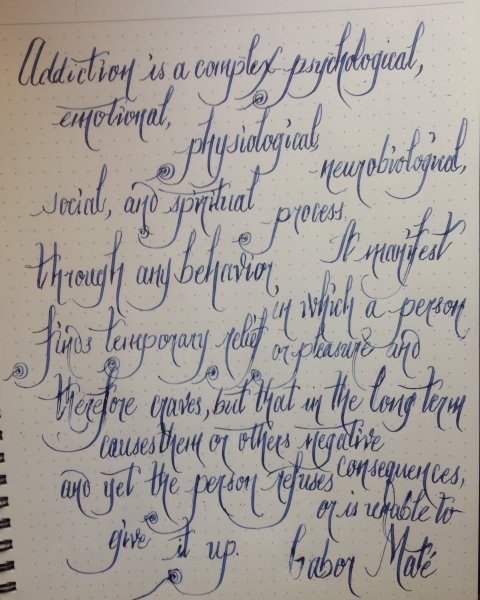 Addiction is a complex psychological,
emotional,
physiological,
neurobiological,
social, and spiritual process.
It manifest
through any behavior,
in which a person
finds temporary relief or pleasure and
therefore craves, but that in the long term
causes them or others negative
consequences,
and yet the person refuses
or is unable to
give it up. Gabor Maté